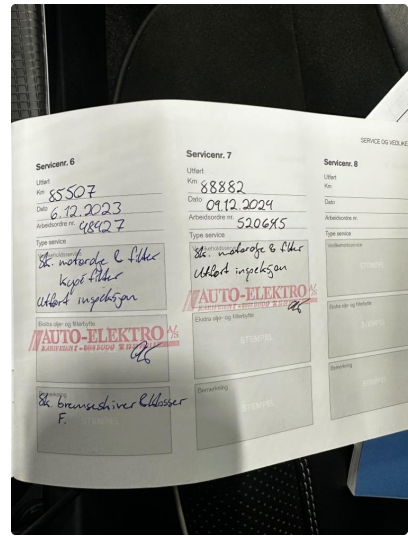 SERVICE OG VEDLIKE
Servicenr. 6
Utført
Km 85507
Dato 6.12.2023
Arbeidsordre nr. 48427
Type service
Vedlikeholdsservice
Sk. motorolje & filter
Kupéfilter
Utført inspeksjon
Ekstra olje- og filterbytte
AUTO-ELEKTRO A/S
Bemerkning
Sk. bremseskiver & klosser
F.
STEMPEL
Servicenr. 7
Utført
Km 88882
Dato 09.12.2024
Arbeidsordre nr. 520645
Type service
Vedlikeholdsservice
Sk. motorolje & filter
Utført inspeksjon
AUTO-ELEKTRO A/S
Ekstra olje- og filterbytte
STEMPEL
Bemerkning
STEMPEL
Servicenr. 8
Utført
Km
Dato
Arbeidsordre nr.
Type service
Vedlikeholdsservice
STEMPEL
Ekstra olje- og filterbytte
STEMPEL
Bemerkning
STEMPEL